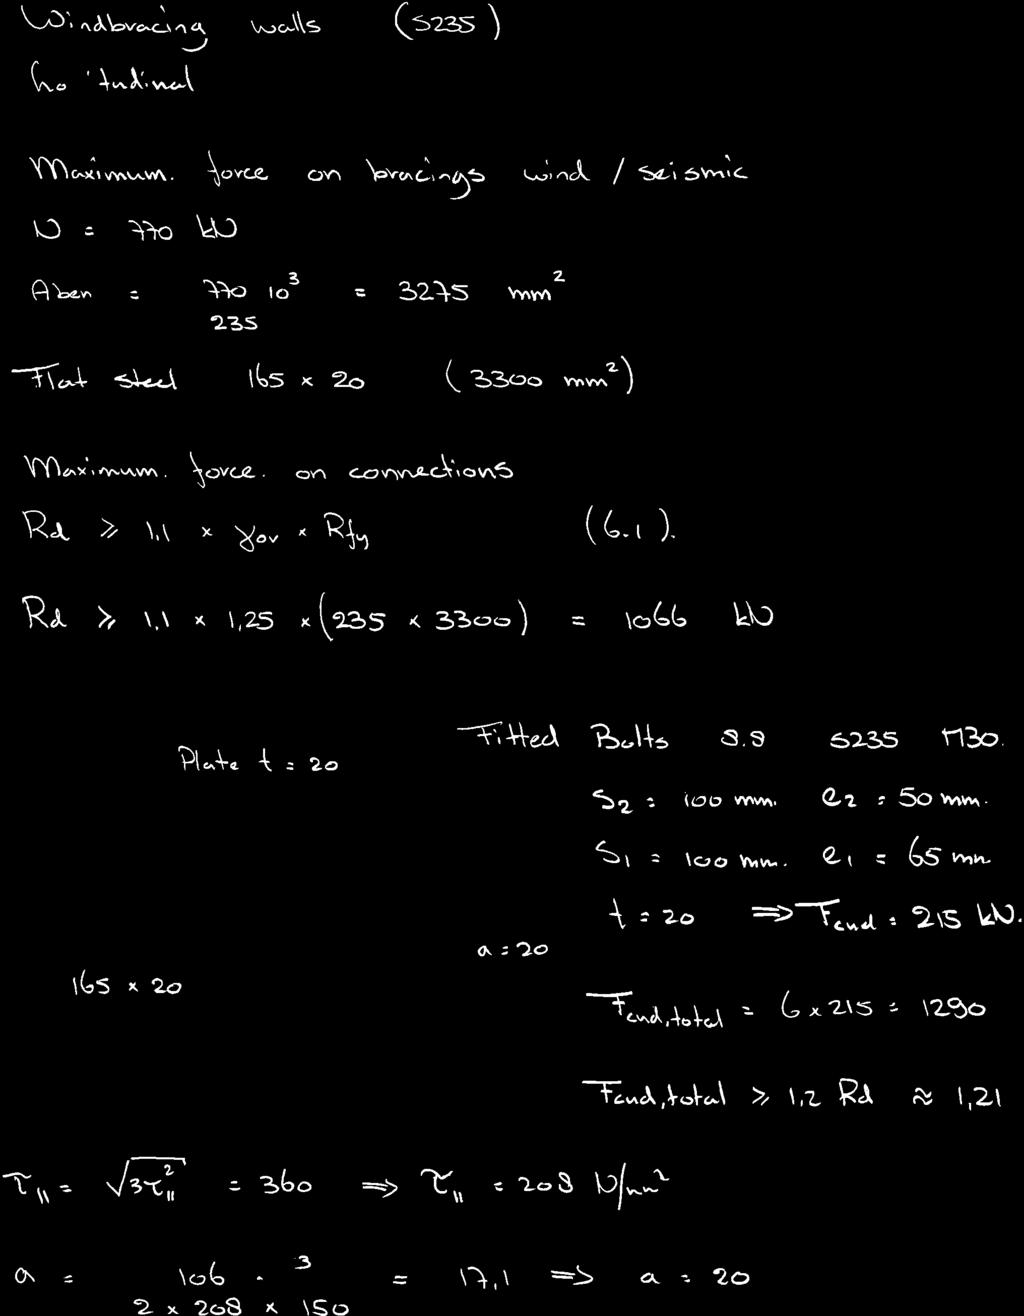 Windbracing walls (S235)
Maximum. force on bracings wind / seismic
N = 770 kN
Aben = 770 10³ = 3275 mm²
235
Flat steel 165 × 20 (3300 mm²)
Maximum. force. on connections
Rd ≥ 1,1 × γov × Rfy (6.1).
Rd ≥ 1,1 × 1,25 × (235 × 3300) = 1066 kN
Fitted Bolts 8.8 S235 M30.
Plate t = 20
S2 = 100 mm. e2 = 50 mm.
S1 = 100 mm. e1 = 65 mm
t = 20 => Fcud = 215 kN.
a = 20
165 × 20
Fcud,total = 6 × 215 = 1290
Fcud,total ≥ 1,2 Rd ≈ 1,21
τ|| = √3τ||² = 360 => τ|| = 208 N/mm²
a = 106 · ³ = 17,1 => a = 20
2 × 208 × 150